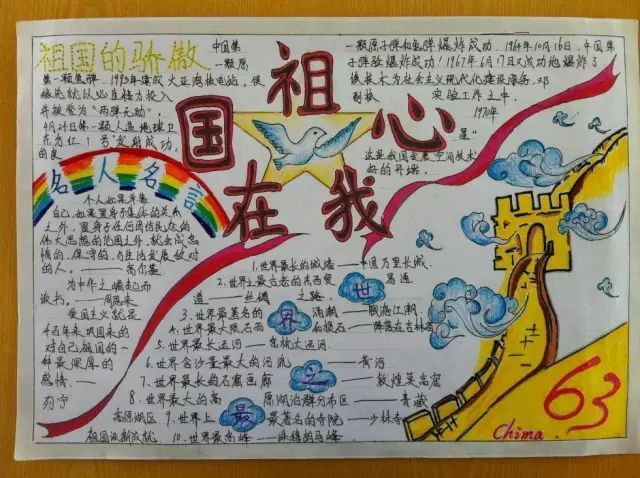 祖国的骄傲
中国第
一颗原
第一颗氢弹.1993年建成大亚湾核电站,使
核
投入
并被誉为“两弹元勋”.
4月24日第一颗人造地球卫
东方红1号”发射成功,
的良
一颗原子弹和氢弹爆炸成功.1964年10月16日,中国第
子弹爆炸成功!1967年6月17日又成功地爆炸了
技术为社会主义现代化建设服务,邓
实验工作之中.
1970年
星“
这是我国发展空间技术
好的开端.
祖
国
心
在
我
名人名言
个人如果单靠
自己,如果置身于集体的关系
之外,置身于任何团结民众的
伟大思想的范围之外,就会成怠
惰的、保守的、与生活发展敌对
的人。——高尔基
为中华之崛起而
读书。——周恩来
爱国主义就是
千百年来巩固来的
对自己祖国的一
种最深厚的
感情.——
列宁
世界之最
1.世界最长的城墙——中国万里长城.
2.世界上最古老的东西贸易通
道——丝绸之路.
3.世界最著名的涌潮——钱塘江潮.
4.世界最大陨石雨和陨石——降落在吉林省
5.世界最长大运河——京杭大运河.
6.世界含沙量最大的河流——黄河
7.世界最长的石窟画廊——敦煌莫高窟
8.世界最大的高原湖泊群分布区——青藏
高原湖区
9.世界上最著名的寺院——少林寺
10.世界最高峰——珠穆朗玛峰.
63
China